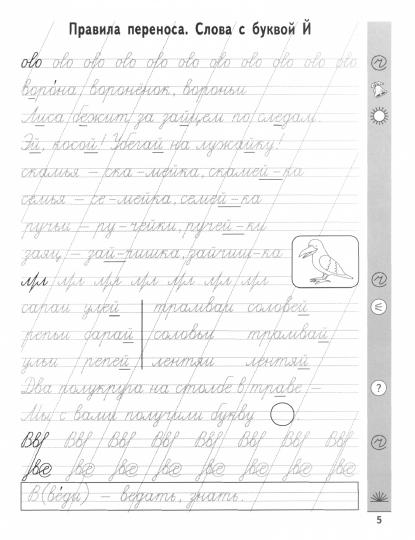 Правила переноса. Слова с буквой Й
ово ово ово ово ово ово ово ово ово ово ово
ворона, воронёнок, вороньи
Лиса бежит за зайцем по следам.
Эй, косой! Убегай на лужайку!
скамья – ска-мейка, скамей-ка
семья – се-мейка, семей-ка
ручьи – ру-чейки, ручей-ки
заяц – зай-чишка, зайчиш-ка
сараи улей трамваи соловей
репьи сарай соловьи трамвай
ульи репей лентяи лентяй
Два полукруга на столбе в траве –
Мы с вами получили букву
В (ве́ди) – ведать, знать.
5